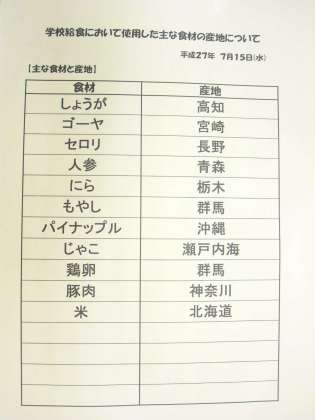 学校給食において使用した主な食材の産地について
平成27年 7月15日(水)
【主な食材と産地】
食材 産地
しょうが 高知
ゴーヤ 宮崎
セロリ 長野
人参 青森
にら 栃木
もやし 群馬
パイナップル 沖縄
じゃこ 瀬戸内海
鶏卵 群馬
豚肉 神奈川
米 北海道